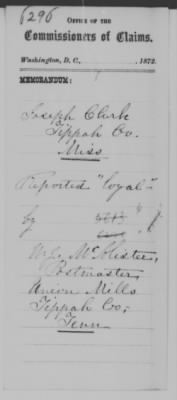 6296
OFFICE OF THE
Commissioners of Claims.
Washington, D. C., 1872.
MEMORANDUM:
Joseph Clark
Tippah Co.
Miss
Reported "loyal"
by
W. C. McAlister,
Postmaster,
Union Mills
Tippah Co,
Tenn